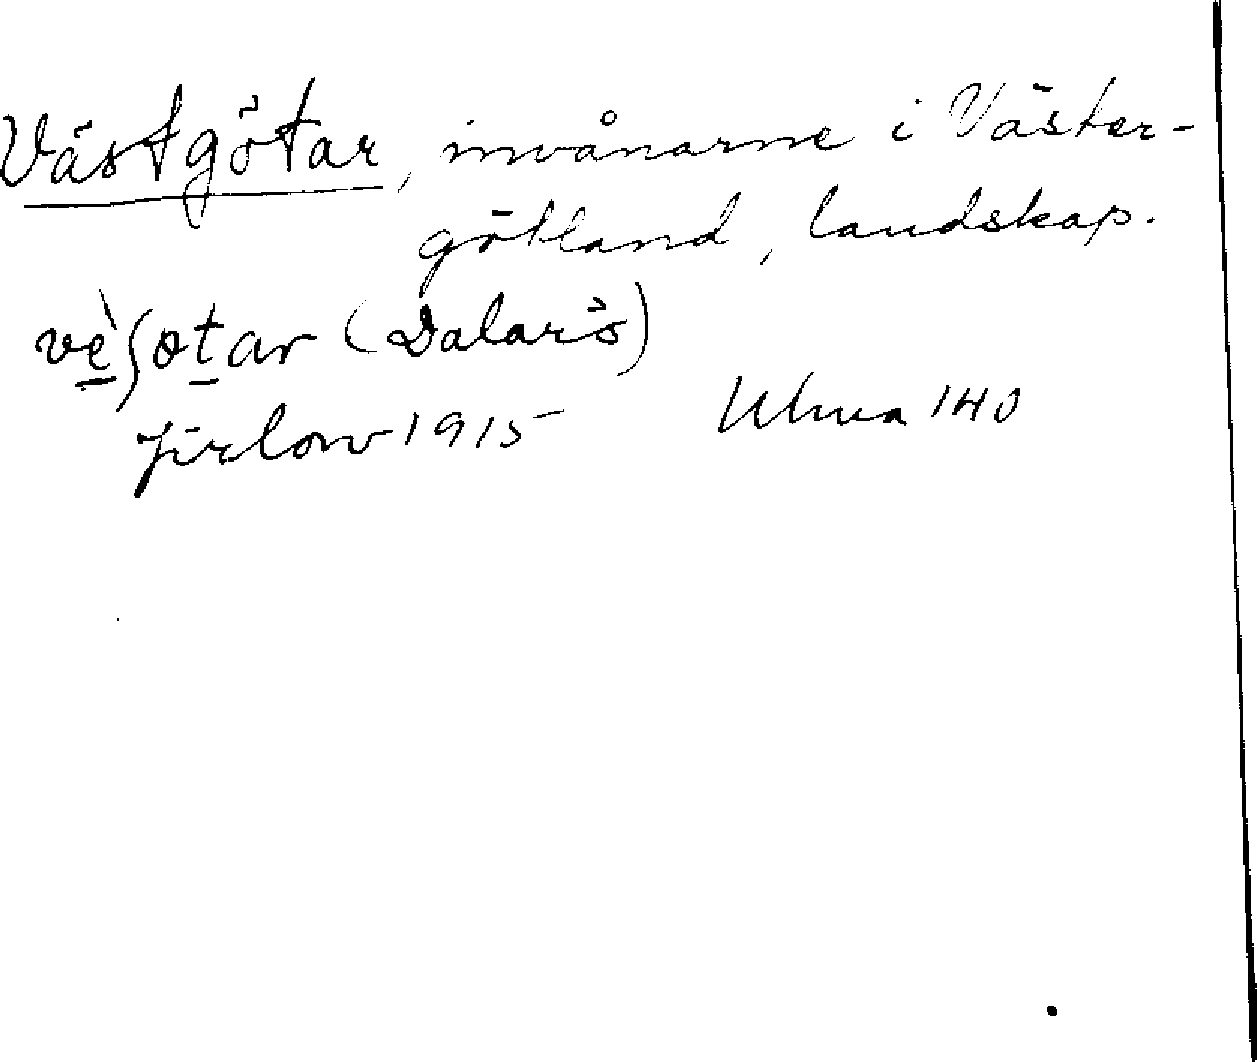 Västgötar, invånarne i Väster-
götland, landskap.
vè̱ʃot̲ar (Dalarö)
Jirlow 1915 Ulma 140